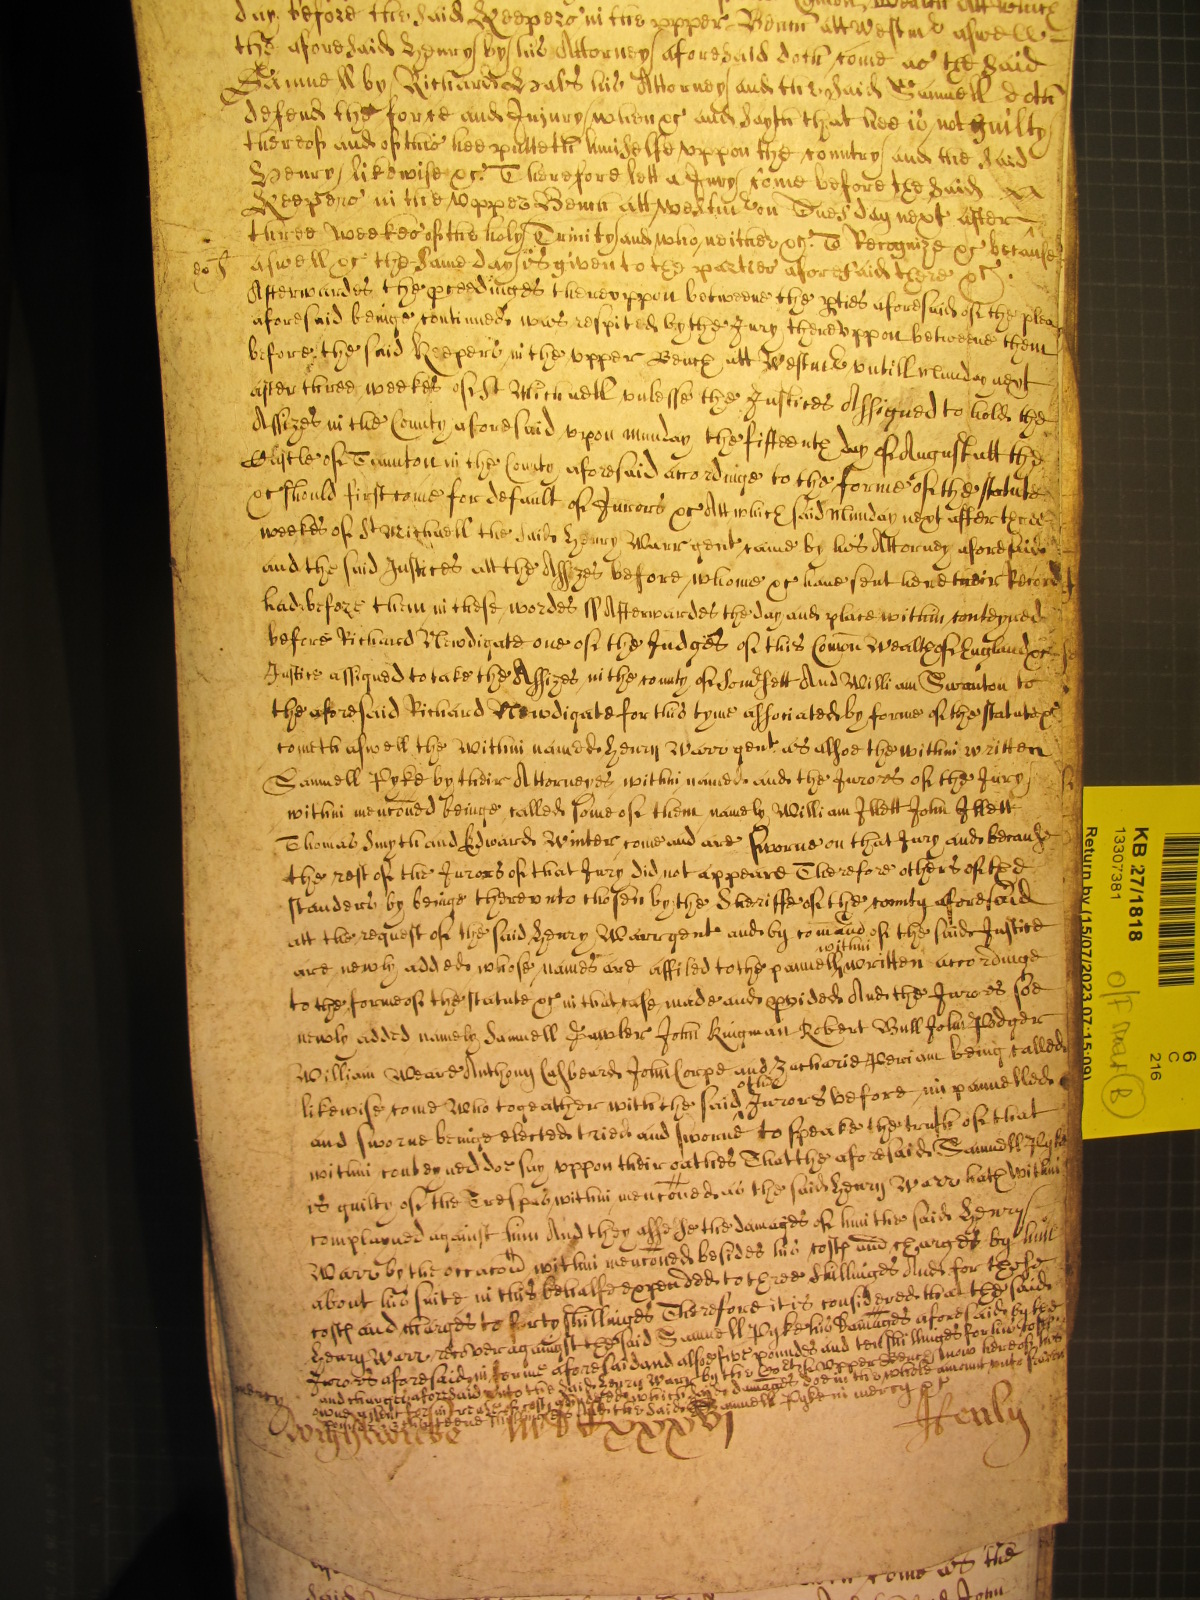 day before the said Keepers in the vpper Bench att Westmr aswell
the aforesaid Henry by his Attorney aforesaid doth come as the said
Samuell by Richard his Attorney and the said Samuell doth
defend the force and Injury when &c And sayth that hee is not guilty
thereof and of this hee putteth himselfe vppon the country and the said
Henry likewise &c Therefore lett a Jury come before the said
Keepers in the vpper Bench att Westmr on Tuesday next after
three weekes of the holy Trinity and who neither &c To Recognize &c because
aswell &c the same day is given to the parties aforesaid there &c
Afterwardes the pceedinges therevppon betweene the pties aforesaid of the plea
aforesaid beinge continued was respited by the Jury therevppon betweene them
before the said Keepers in the vpper Bench att Westmr vntill Munday next
after three weekes of St Michaell vnlesse the Justices Assigned to hold the
Assizes in the County aforesaid vpon Munday the fifteenth day of August att the
Castle of Taunton in the County aforesaid accordinge to the forme of the statute
&c should first come for default of Jurors &c Att which said Munday next after three
weekes of St Michaell the said Henry Warr gent came by his Attorney aforesaid
and the said Justices att the Assizes before whome &c have sent here their Record
had before them in these wordes ss Afterwardes the day and place within conteyned
before Richard Newdigate one of the Judges of this Comon Wealth of England &c
Justice assigned to take the Assizes in the county of Somsett And William Swanton to
the aforesaid Richard Newdigate for this tyme associated by forme of the statute &c
cometh aswell the within named Henry Warr gent as alsoe the within written
Samuell Pyke by their Attorneyes within named and the Jurors of the Jury
within menconed beinge called some of them namely William Jllett John Jllett
Thomas Smyth and Edward Winter come and are sworne on that Jury and because
the rest of the Jurors of that Jury did not appeare Therefore others of the
standers by beinge therevnto chosen by the Sheriffe of the county aforesaid
att the request of the said Henry Warr gent and by comaund of the said Justice
are newly added whose names are affiled to the pannell within written accordinge
to the forme of the statute &c in that case made and pvided And the Jurors soe
newly added namely Samuell Fawler John Kingman Robert Bull John Podger
William Weare Anthony Calbeard John Coupe and Zacharie Periam being called
likewise come Who togeather with the said other Jurors before impannelled
and sworne beinge elected tried and sworne to speake the truth of that
within conteyned doe say vppon their oathes That the aforesaid Samuell Pyke
is guilty of the Trespas within menconed as the said Henry Warr hath within
complayned against him And they assesse the damages of him the said Henry
Warr by the occacon within menconed besides his costs and charges by him
about his suite in this behalfe expended to three shillinges And for those
costs and charges to forty shillinges Therefore it is considered that the said
Henry Warr recover against the said Samuell Pyke his damages aforesaid by the
Jurors aforesaid in forme aforesaid and alsoe five poundes and ten shillinges for his costs
and charges aforesaid vnto the said Henry Warr by the Court of the vpper Bench now here of his
owne assent for increase of costs adiudged which said damages doe in the whole amount vnto seaven
Samuell Pyke in mercy &c
mercy
Henly
KB 27/1818
13307381
Return by (15/07/2023 07:15:09)
6
C
216